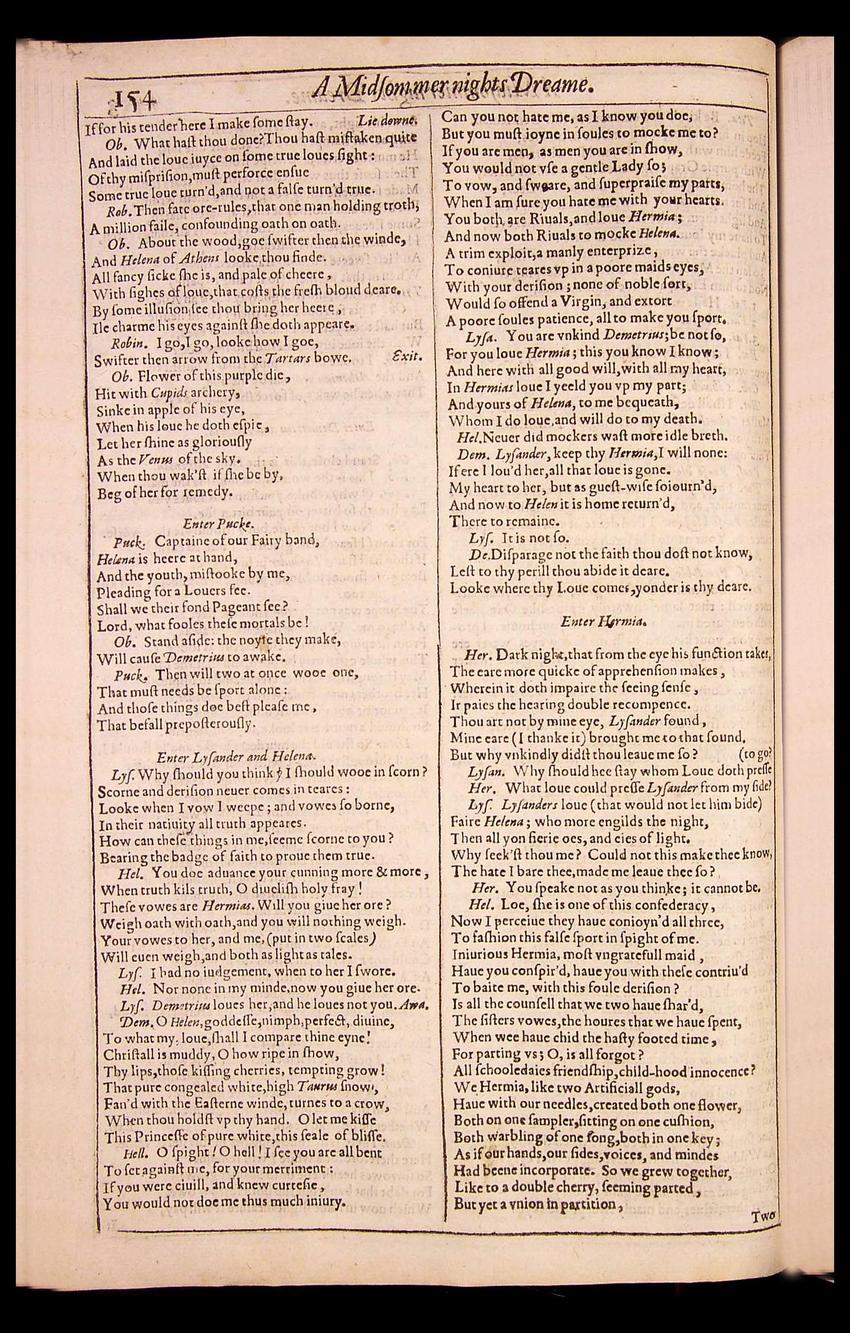 154
A Midſommer nights Dreame.
If for his tender here I make ſome ſtay. Lie downe.
Ob. What haſt thou done? Thou haſt miſtaken quite
And laid the loue iuyce on ſome true loues ſight:
Of thy miſpriſion, muſt perforce enſue
Some true loue turn'd, and not a falſe turn'd true.
Rob. Then fate ore-rules, that one man holding troth,
A million faile, confounding oath on oath.
Ob. About the wood, goe ſwifter then the winde,
And Helena of Athens looke thou finde.
All fancy ſicke ſhe is, and pale of cheere,
With ſighes of loue, that coſts the freſh bloud deare.
By ſome illuſion ſee thou bring her heere,
Ile charme his eyes againſt ſhe doth appeare.
Robin. I go, I go, looke how I goe,
Swifter then arrow from the Tartars bowe. Exit.
Ob. Flower of this purple die,
Hit with Cupids archery,
Sinke in apple of his eye,
When his loue he doth eſpie,
Let her ſhine as glorioufly
As the Venus of the sky.
When thou wak'ſt if ſhe be by,
Beg of her for remedy.
Enter Pucke.
Puck. Captaine of our Fairy band,
Helena is heere at hand,
And the youth, miſtooke by me,
Pleading for a Louers fee.
Shall we their fond Pageant ſee?
Lord, what fooles theſe mortals be!
Ob. Stand aſide: the noyſe they make,
Will cauſe Demetrius to awake.
Puck. Then will two at once wooe one,
That muſt needs be ſport alone:
And thoſe things doe beſt pleaſe me,
That befall prepoſterouſly.
Enter Lyſander and Helena.
Lyſ. Why ſhould you think ẏ I ſhould wooe in ſcorn?
Scorne and deriſion neuer comes in teares:
Looke when I vow I weepe; and vowes ſo borne,
In their natiuity all truth appeares.
How can theſe things in me, ſeeme ſcorne to you?
Bearing the badge of faith to proue them true.
Hel. You doe aduance your cunning more & more,
When truth kils truth, O diueliſh holy fray!
Theſe vowes are Hermias. Will you giue her ore?
Weigh oath with oath, and you will nothing weigh.
Your vowes to her, and me, (put in two ſcales)
Will euen weigh, and both as light as tales.
Lyſ. I had no iudgement, when to her I ſwore.
Hel. Nor none in my minde, now you giue her ore.
Lyſ. Demetrius loues her, and he loues not you. Awa.
Dem. O Helen, goddeſſe, nimph, perfect, diuine,
To what my, loue, ſhall I compare thine eyne!
Chriſtall is muddy, O how ripe in ſhow,
Thy lips, thoſe kiſſing cherries, tempting grow!
That pure congealed white, high Taurus ſnow,
Fan'd with the Eaſterne winde, turnes to a crow,
When thou holdſt vp thy hand. O let me kiſſe
This Princeſſe of pure white, this ſeale of bliſſe.
Hell. O ſpight! O hell! I ſee you are all bent
To ſet againſt me, for your merriment:
If you were ciuill, and knew curteſie,
You would not doe me thus much iniury.
Can you not hate me, as I know you doe,
But you muſt ioyne in ſoules to mocke me to?
If you are men, as men you are in ſhow,
You would not vſe a gentle Lady ſo;
To vow, and ſweare, and ſuperpraiſe my parts,
When I am ſure you hate me with your hearts.
You both are Riuals, and loue Hermia;
And now both Riuals to mocke Helena.
A trim exploit, a manly enterprize,
To coniure teares vp in a poore maids eyes,
With your deriſion; none of noble ſort,
Would ſo offend a Virgin, and extort
A poore ſoules patience, all to make you ſport.
Lyſa. You are vnkind Demetrius; be not ſo,
For you loue Hermia; this you know I know;
And here with all good will, with all my heart,
In Hermias loue I yeeld you vp my part;
And yours of Helena, to me bequeath,
Whom I do loue, and will do to my death.
Hel. Neuer did mockers waſt more idle breth.
Dem. Lyſander, keep thy Hermia, I will none:
If ere I lou'd her, all that loue is gone.
My heart to her, but as gueſt-wiſe ſoiourn'd,
And now to Helen it is home return'd,
There to remaine.
Lyſ. It is not ſo.
De. Diſparage not the faith thou doſt not know,
Leſt to thy perill thou abide it deare.
Looke where thy Loue comes, yonder is thy deare.
Enter Hermia.
Her. Dark night, that from the eye his function takes,
The eare more quicke of apprehenſion makes,
Wherein it doth impaire the ſeeing ſenſe,
It paies the hearing double recompence.
Thou art not by mine eye, Lyſander found,
Mine eare (I thanke it) brought me to that ſound.
But why vnkindly didſt thou leaue me ſo? (to go?
Lyſan. Why ſhould hee ſtay whom Loue doth preſſe
Her. What loue could preſſe Lyſander from my ſide?
Lyſ. Lyſanders loue (that would not let him bide)
Faire Helena; who more engilds the night,
Then all yon fierie oes, and eies of light.
Why ſeek'ſt thou me? Could not this make thee know,
The hate I bare thee, made me leaue thee ſo?
Her. You ſpeake not as you thinke; it cannot be.
Hel. Loe, ſhe is one of this confederacy,
Now I perceiue they haue conioyn'd all three,
To faſhion this falſe ſport in ſpight of me.
Iniurious Hermia, moſt vngratefull maid,
Haue you conſpir'd, haue you with theſe contriu'd
To baite me, with this foule deriſion?
Is all the counſell that we two haue ſhar'd,
The ſiſters vowes, the houres that we haue ſpent,
When wee haue chid the haſty footed time,
For parting vs; O, is all forgot?
All ſchooledaies friendſhip, child-hood innocence?
We Hermia, like two Artificiall gods,
Haue with our needles, created both one flower,
Both on one ſampler, ſitting on one cuſhion,
Both warbling of one ſong, both in one key;
As if our hands, our ſides, voices, and mindes
Had beene incorporate. So we grew together,
Like to a double cherry, ſeeming parted,
But yet a vnion in partition,
Two